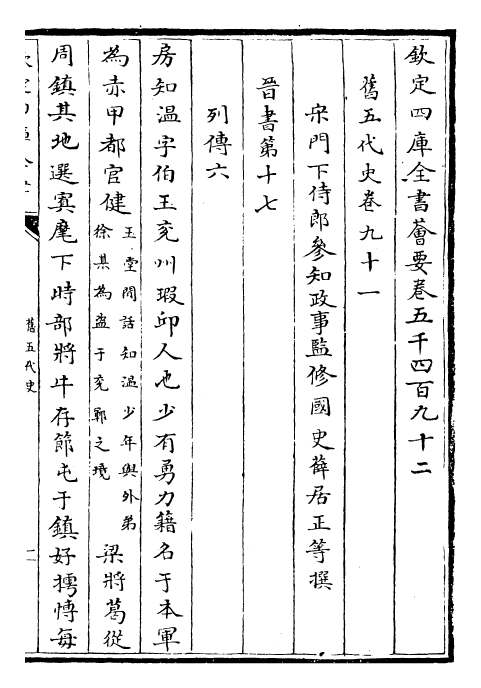 欽定四庫全書薈要卷五千四百九十二
舊五代史卷九十一
宋門下侍郎參知政事監修國史薛居正等撰
晉書第十七
列傳六
房知温字伯玉兖州瑕邱人也少有勇力籍名于本軍
為赤甲都官健
玉堂閒話知温少年與外弟
徐某為盗于兖鄆之境
梁將葛從
周鎮其地選寘麾下時部將牛存節屯于鎮好摴博每
舊五代史
一